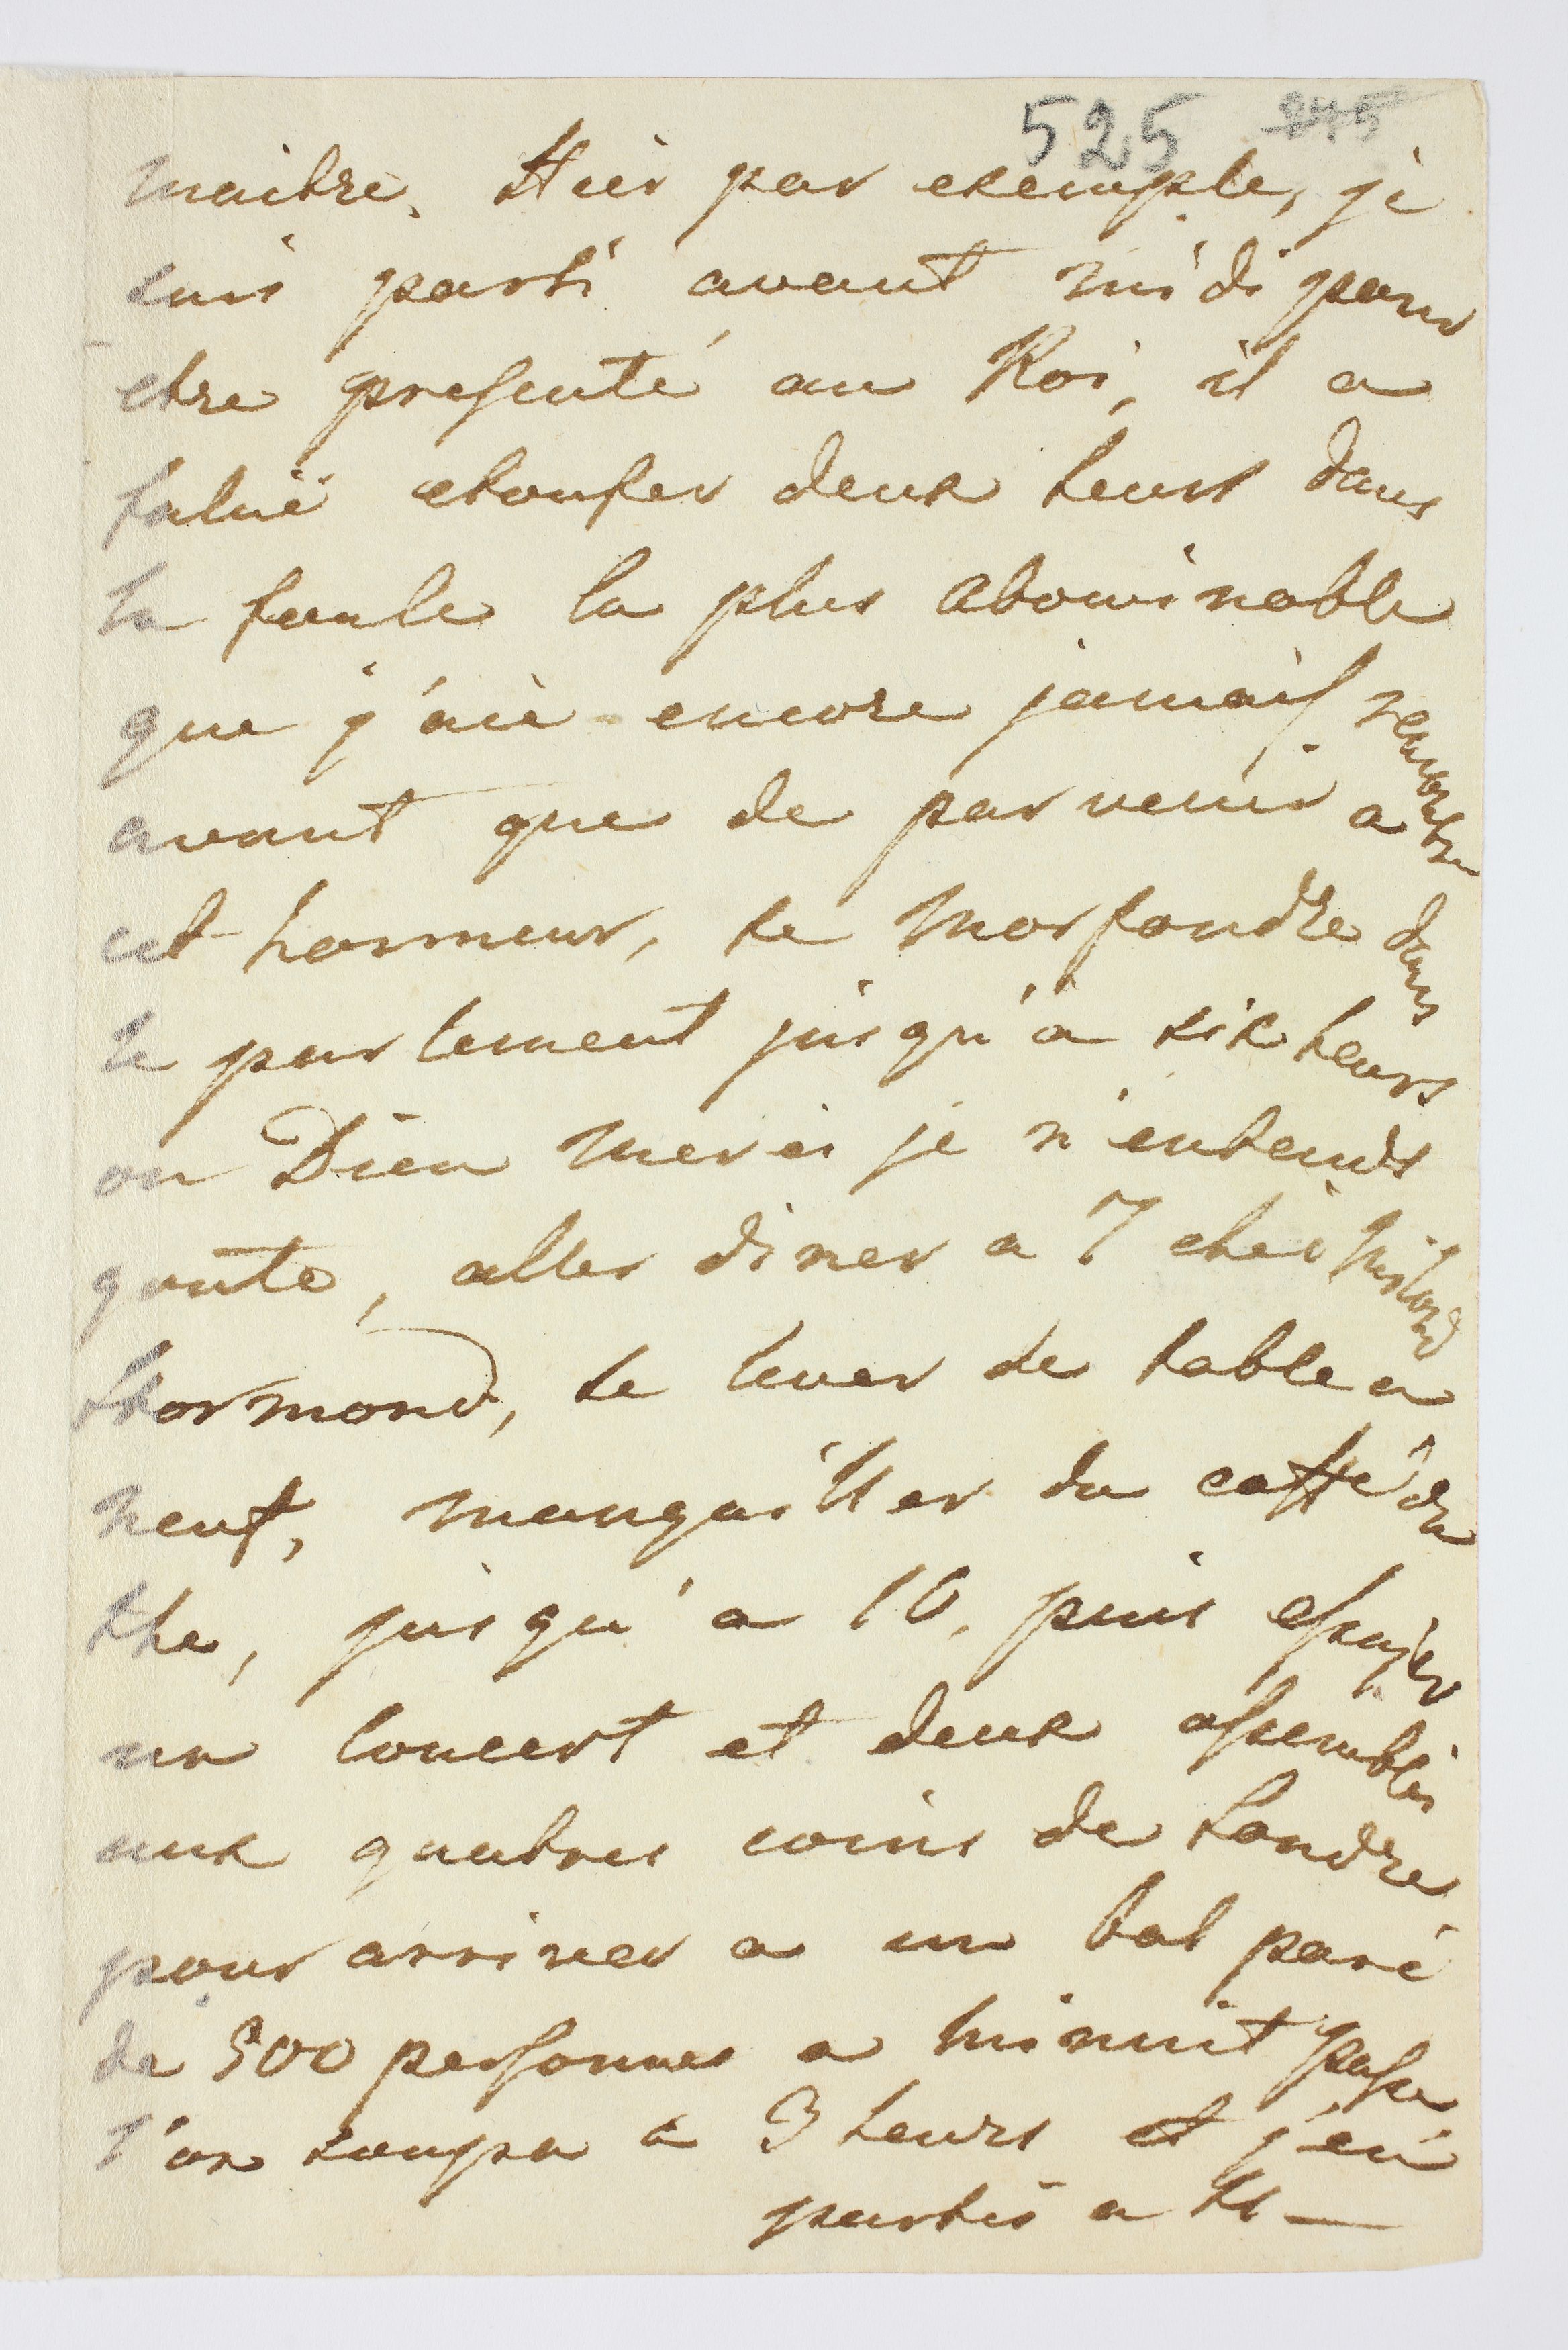 525 245
maitre. Hier par exemple, je
suis parti avant midi pour
etre presenté au Roi, il a
falut etoufer deux heurs dans
la foule la plus abominable
que j'aie encore jamais rencontre
avant que de parvenir a
cet honneur, se morfondre dans
le parlement jusqu'a six heurs
ou Dieu merci je n'entends
goute, aller diner a 7 chez Milord
Stormond, se lever de table a
neuf, mangailler du caffé du
the, jusqu'a 10, puis essayer
un concert et deux assemblés
aux quatres coins de Londre
pour arriver a un bal paré
de 500 personnes a minuit passe
l'on soupa a 3 heurs et j'en
partis a 4 —